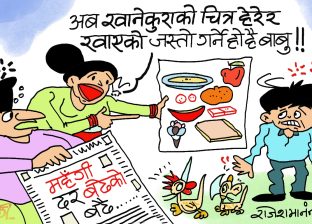 अब खानेकुराको चित्र हेरेर
खाएको जस्तो गर्ने हो है बाबु !!
महँगी
दर बढेको
बढै...
राजशमानन्